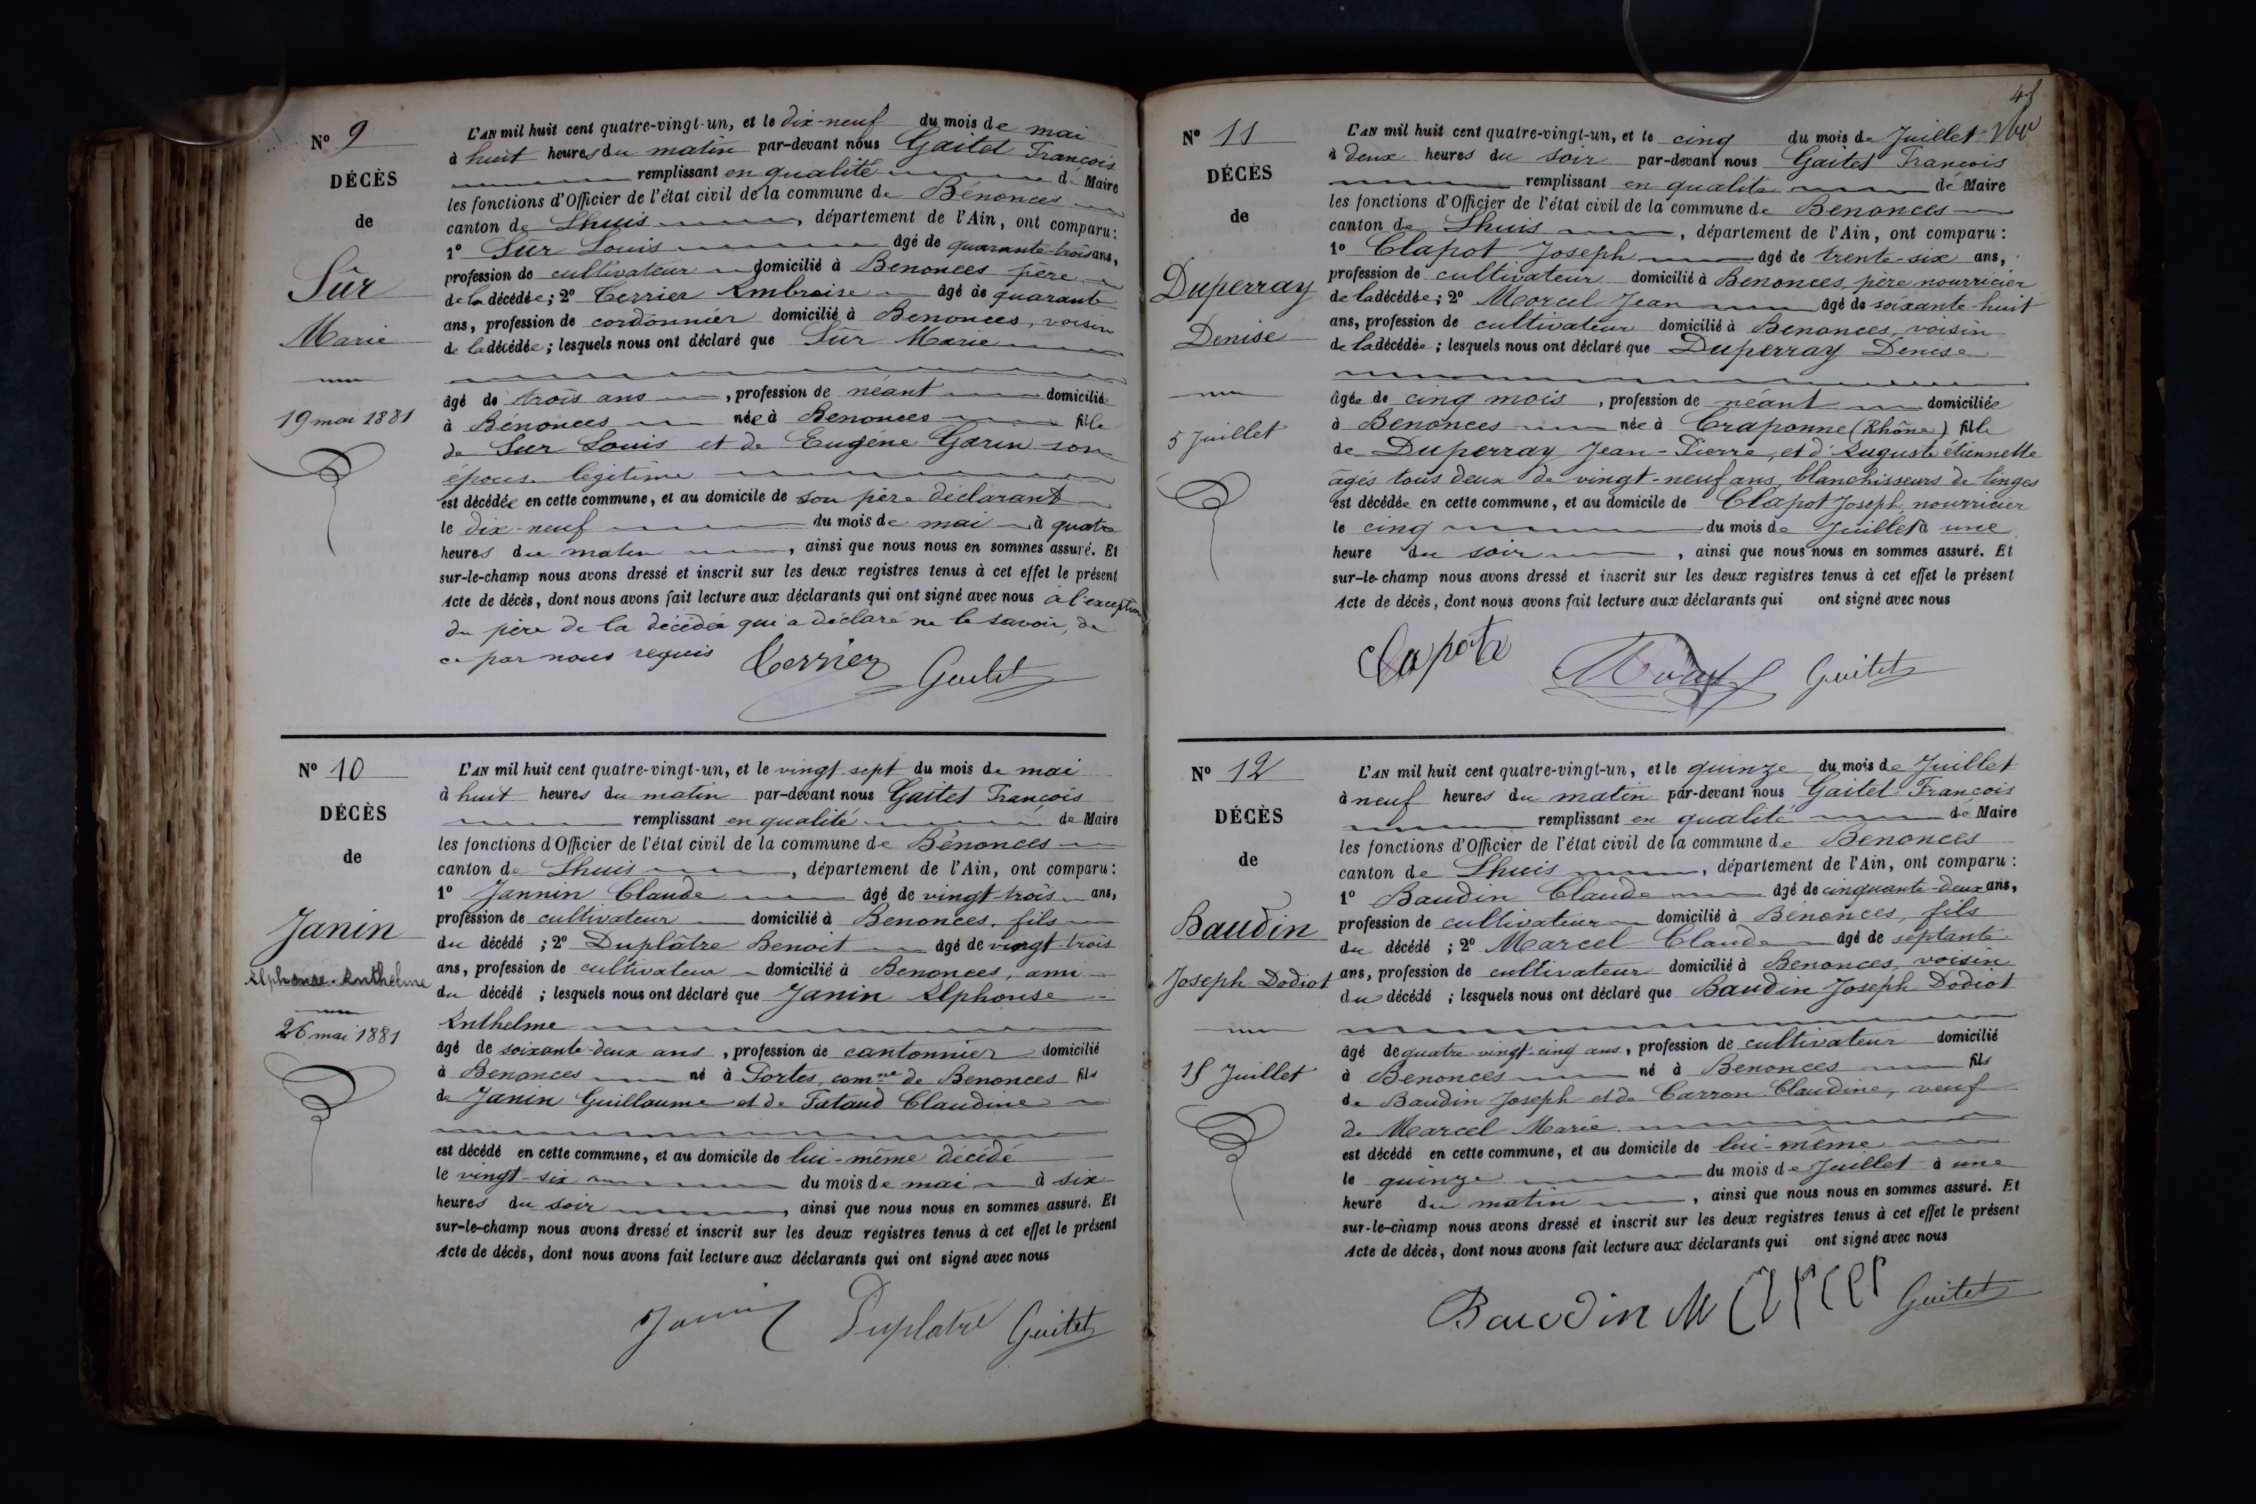 N° 9
DÉCÈS
de
Sûr
Marie
19 mai 1881
L'AN mil huit cent quatre-vingt-un, et le dix-neuf du mois de mai
à huit heures du matin par-devant nous Gaitet François
remplissant en qualité de Maire
les fonctions d'Officier de l'état civil de la commune de Bénonces
canton de Lhuis, département de l'Ain, ont comparu:
1° Sûr Louis âgé de quarante-trois ans,
profession de cultivateur domicilié à Benonces père
de la décédée; 2° Terrier Ambroise âgé de quarante
ans, profession de cordonnier domicilié à Benonces, voisin
de la décédée; lesquels nous ont déclaré que Sûr Marie
âgé de trois ans, profession de néant domiciliée
à Bénonces née à Benonces fille
de Sur Louis et de Eugéne Garin son
épouse légitime
est décédée en cette commune, et au domicile de son père déclarant
le dix-neuf du mois de mai à quatre
heures du matin, ainsi que nous nous en sommes assuré. Et
sur-le-champ nous avons dressé et inscrit sur les deux registres tenus à cet effet le présent
Acte de décès, dont nous avons fait lecture aux déclarants qui ont signé avec nous à l'exception
du père de la décédée qui a déclaré ne le savoir, de
ce par nous requis
Terrier Guitet
N° 10
DÉCÈS
de
Janin
Alphonse-Anthelme
26 mai 1881
L'AN mil huit cent quatre-vingt-un, et le vingt-sept du mois de mai
à huit heures du matin par-devant nous Gaitet François
remplissant en qualité de Maire
les fonctions d'Officier de l'état civil de la commune de Bénonces
canton de Lhuis, département de l'Ain, ont comparu:
1° Jannin Claude âgé de vingt-trois ans,
profession de cultivateur domicilié à Benonces, fils
du décédé; 2° Duplâtre Benoit âgé de vingt-trois
ans, profession de cultivateur domicilié à Benonces, ami
du décédé; lesquels nous ont déclaré que Janin Alphonse
Anthelme
âgé de soixante-deux ans, profession de cantonnier domicilié
à Benonces né à Portes, comne de Benonces fils
de Janin Guillaume et de Tataud Claudine
est décédé en cette commune, et au domicile de lui-même décédé
le vingt-six du mois de mai à six
heures du soir, ainsi que nous nous en sommes assuré. Et
sur-le-champ nous avons dressé et inscrit sur les deux registres tenus à cet effet le présent
Acte de décès, dont nous avons fait lecture aux déclarants qui ont signé avec nous
Janin Duplatre Guitet
N° 11
DÉCÈS
de
Duperray
Denise
5 Juillet
L'AN mil huit cent quatre-vingt-un, et le cinq du mois de Juillet
à deux heures du soir par-devant nous Gaitet François
remplissant en qualité de Maire
les fonctions d'Officier de l'état civil de la commune de Benonces
canton de Lhuis, département de l'Ain, ont comparu:
1° Clapot Joseph âgé de trente-six ans,
profession de cultivateur domicilié à Benonces, père nourricier
de la décédée; 2° Marcel Jean âgé de soixante-huit
ans, profession de cultivateur domicilié à Benonces, voisin
de la décédée; lesquels nous ont déclaré que Duperray Denise
âgée de cinq mois, profession de néant domiciliée
à Benonces née à Craponne (Rhône) fille
de Duperray Jean-Pierre, et d'Auguste étiennette
âgés tous deux de vingt-neuf ans, blanchisseurs de linges
est décédée en cette commune, et au domicile de Clapot Joseph, nourricier
le cinq du mois de Juillet à une
heure du soir, ainsi que nous nous en sommes assuré. Et
sur-le-champ nous avons dressé et inscrit sur les deux registres tenus à cet effet le présent
Acte de décès, dont nous avons fait lecture aux déclarants qui ont signé avec nous
Clapot Guitet
N° 12
DÉCÈS
de
Baudin
Joseph Dodiot
15 Juillet
L'AN mil huit cent quatre-vingt-un, et le quinze du mois de Juillet
à neuf heures du matin par-devant nous Gaitet François
remplissant en qualité de Maire
les fonctions d'Officier de l'état civil de la commune de Benonces
canton de Lhuis, département de l'Ain, ont comparu:
1° Baudin Claude âgé de cinquante-deux ans,
profession de cultivateur domicilié à Bénonces, fils
du décédé; 2° Marcel Claude âgé de septante
ans, profession de cultivateur domicilié à Benonces, voisin
du décédé; lesquels nous ont déclaré que Baudin Joseph Dodiot
âgé de quatre-vingt-cinq ans, profession de cultivateur domicilié
à Benonces né à Benonces fils
de Baudin Joseph et de Carron Claudine, veuf
de Marcel Marie
est décédé en cette commune, et au domicile de lui-même
le quinze du mois de Juillet à une
heure du matin, ainsi que nous nous en sommes assuré. Et
sur-le-champ nous avons dressé et inscrit sur les deux registres tenus à cet effet le présent
Acte de décès, dont nous avons fait lecture aux déclarants qui ont signé avec nous
Baudin Marcel Guitet